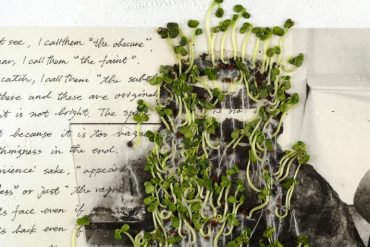 t see, I call them "the obscure".
ear, I call them "the faint".
catch, I call them "the subt
these and these are original
t is not bright. The sp is no
t because it is too vague
thingness in the end.
enience' sake, appeare
ess" or just "the vague
ts face even if
ts back even